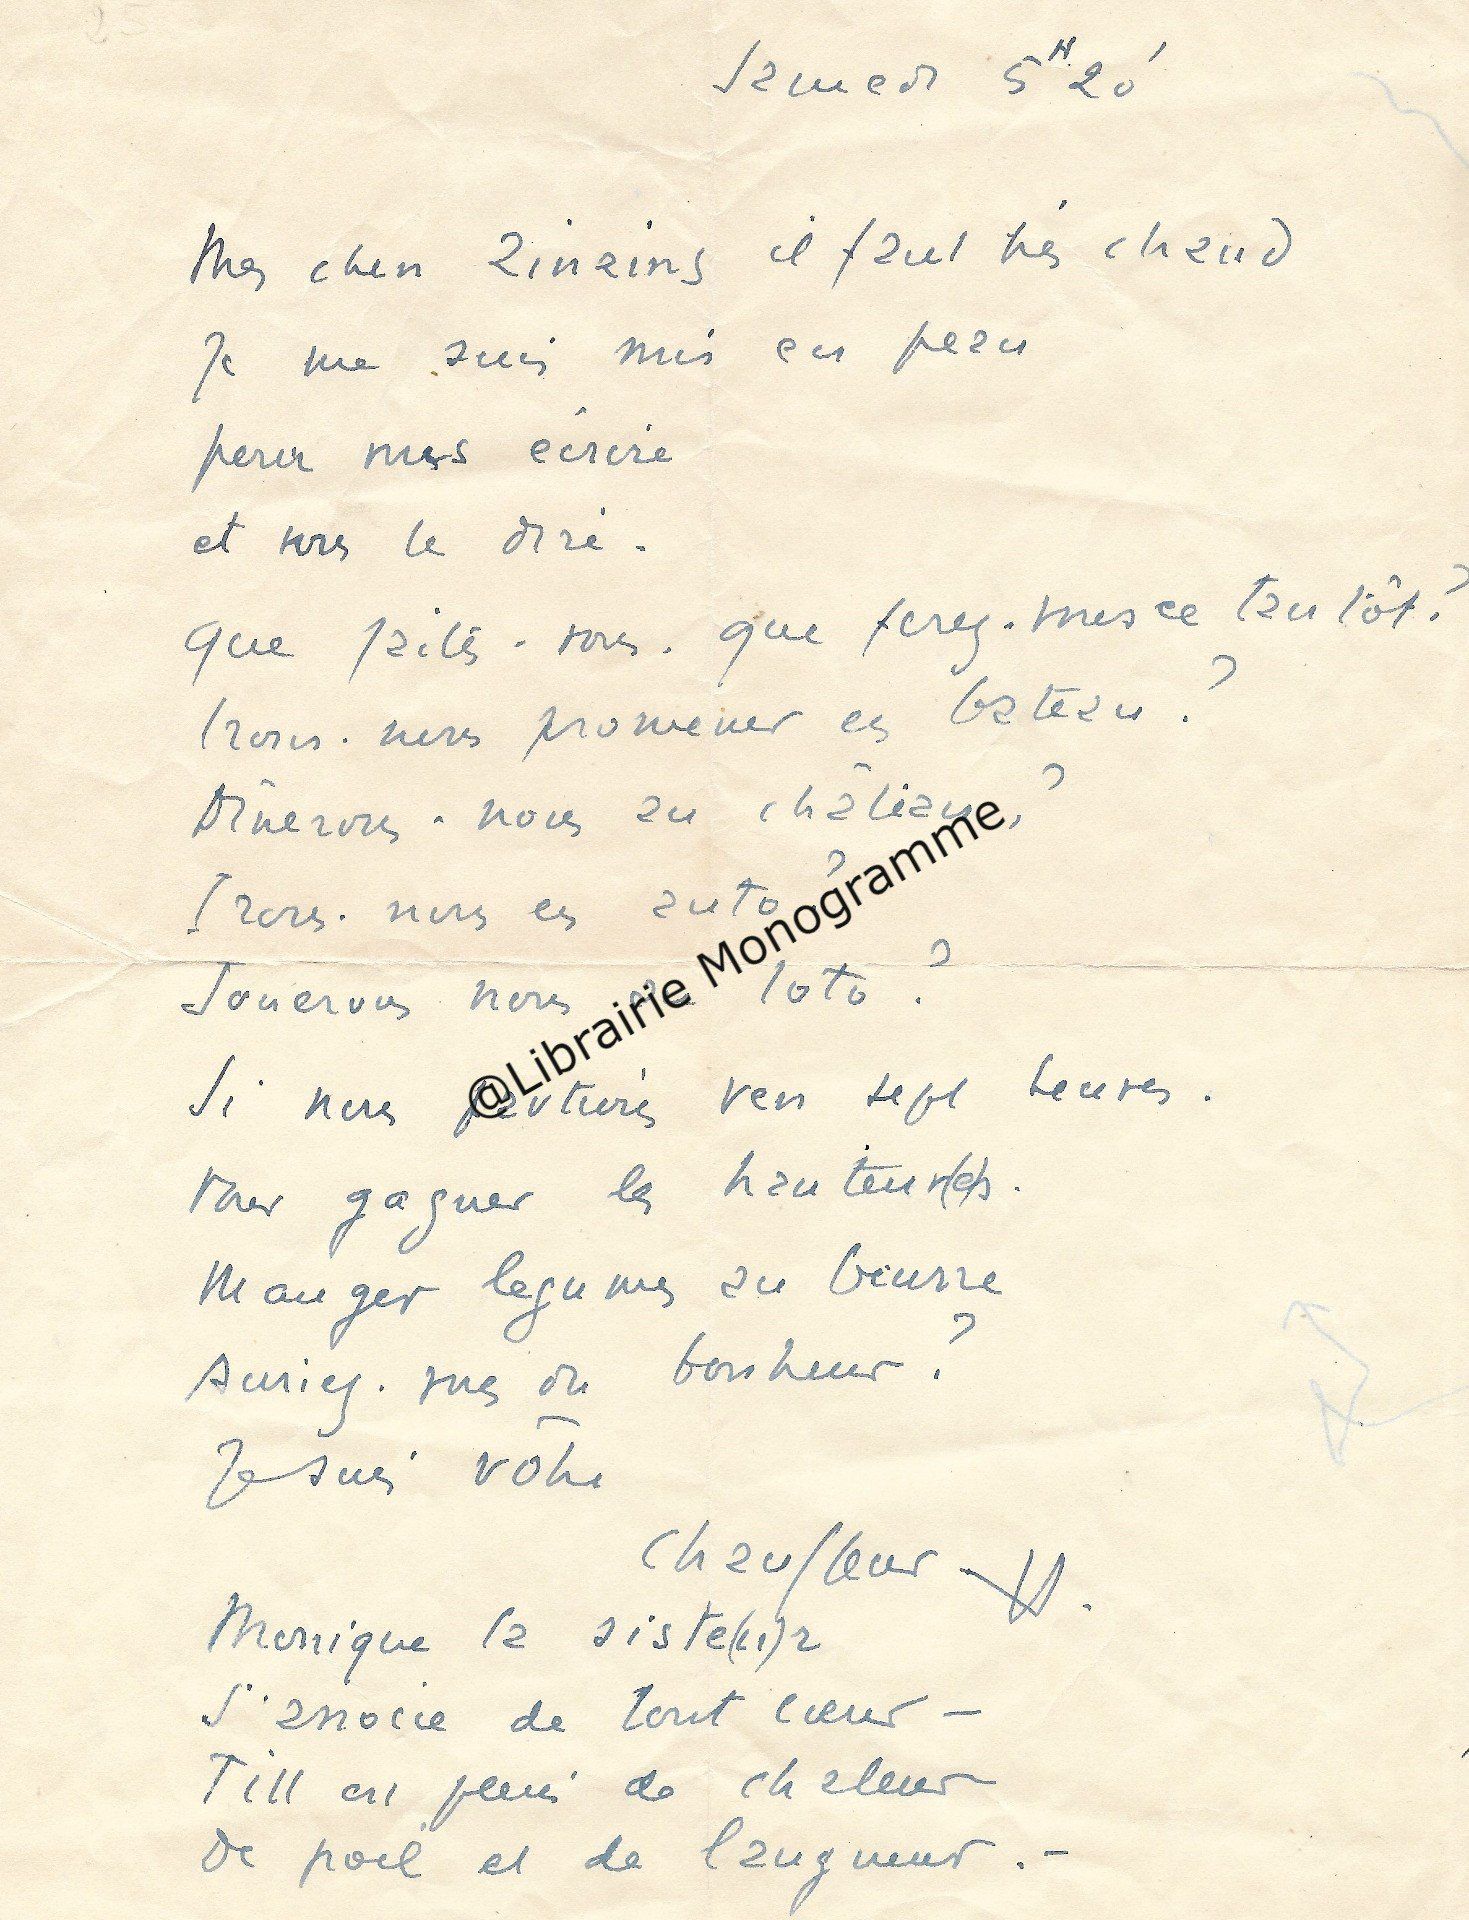 Samedi 5H20'
Mes chers Zinzins il fait très chaud
Je me suis mis en peau
pour vous écrire
et vous le dire.
Que faites-vous. que ferez-vous ce tantôt?
Irons-nous promener en bateau?
Dînerons-nous au château?
Irons-nous en auto?
Jouerons nous au loto?
Si nous partions vers sept heures.
Pour gagner les hauteur(e)s.
Manger legumes au beurre
Auriez-vous du bonheur?
Je suis vôtre
Chauffeur
Monique la siste(u)r
S'associe de tout cœur —
Till en plein de chaleur
De poil et de langueur.—
@Librairie Monogramme